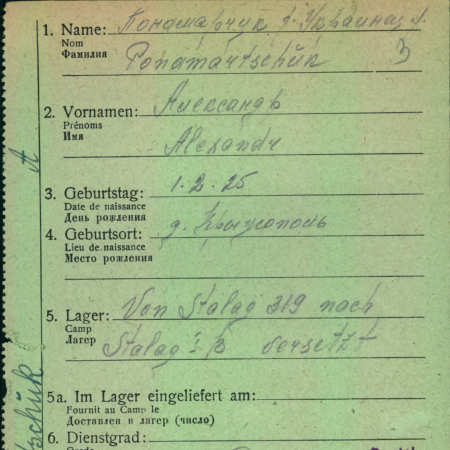 1. Name: Пономарчук
Nom
Фамилия Ponamartschuk 3
2. Vornamen: Александр
Prénoms
Имя Alexandr
3. Geburtstag: 1.2.25
Date de naissance
День рождения
4. Geburtsort: д. Крыжополь
Lieu de naissance
Место рождения
5. Lager: Von Stalag 319 nach
Camp
Лагер Stalag I B versetzt
5a. Im Lager eingeliefert am:
Fournit au Camp le
Доставлен в лагер (число)
6. Dienstgrad: